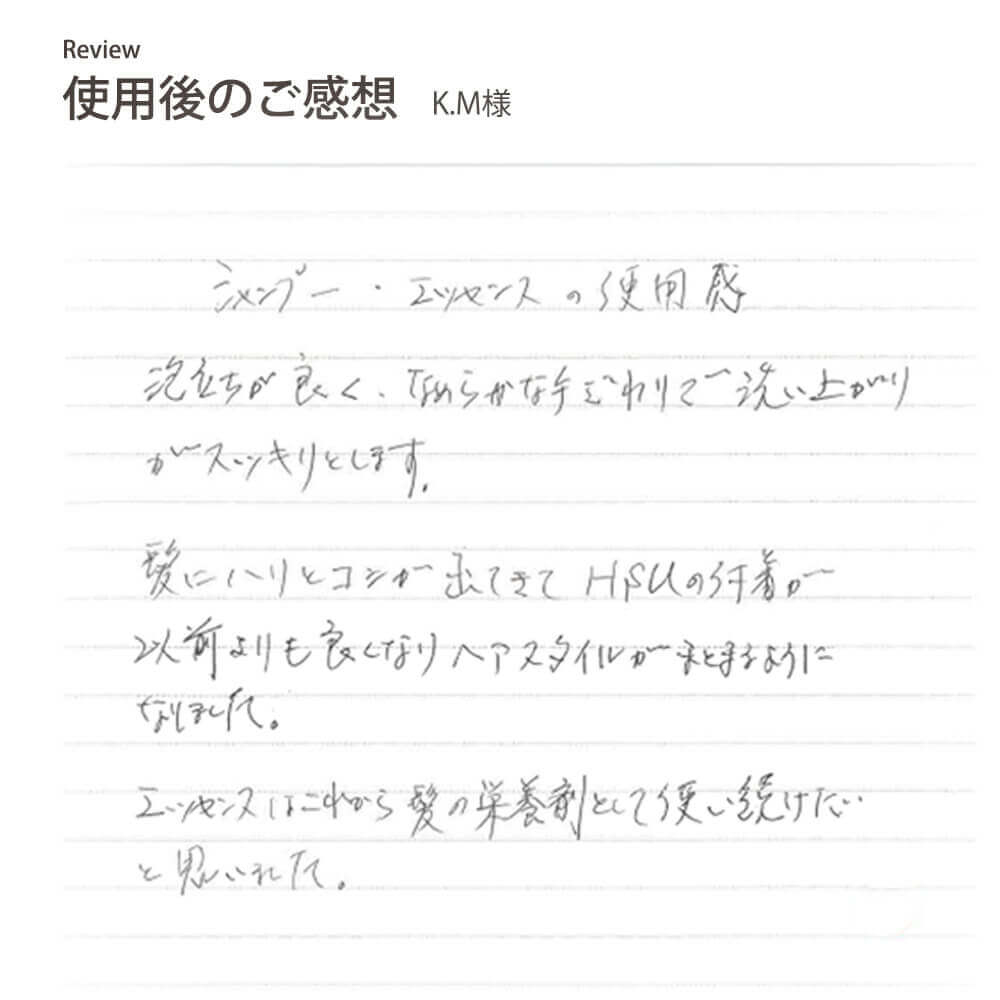 Review
使用後のご感想 K.M様
シャンプー・エッセンスの使用感
泡立ちが良く、なめらかな手ざわりで洗い上がり
がスッキリとします。
髪にハリとコシが出てきて HSUの付着が
以前よりも良くなりヘアスタイルがまとまるように
なりました。
エッセンスはこれから髪の栄養剤として使い続けたい
と思いました。